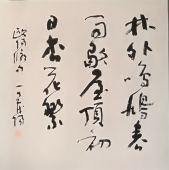 林外鳴鳩春
雨歇屋頭初
日杏花繁
歐陽修句